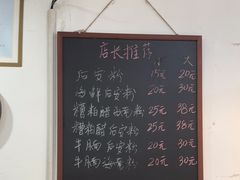 店长推荐
小 大
后安粉 15元 20元
海鲜后安粉 20元 30元
糟粕醋海鬼粉 25元 38元
糟粕醋后安粉 25元 38元
牛腩后安粉 20元 30元
牛腩海鬼粉 20元 30元